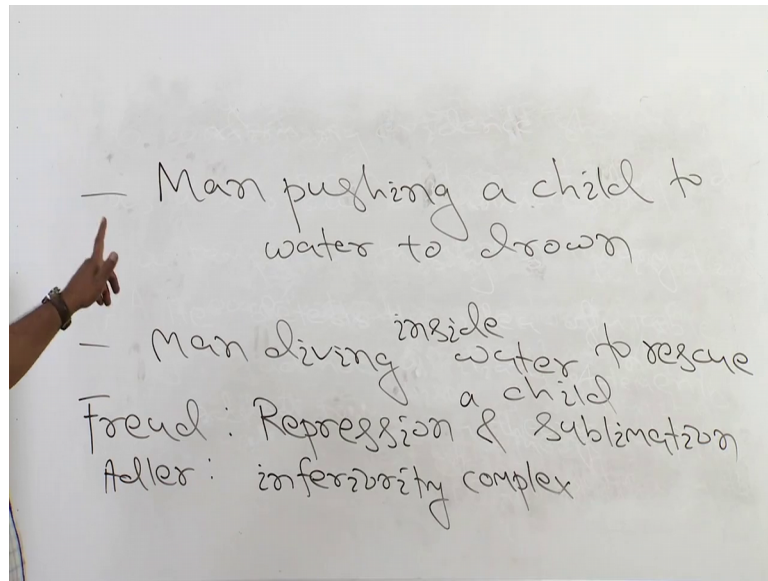 — Man pushing a child to
water to drown
— Man diving inside water to rescue
a child
Freud: Repression & sublimation
Adler: inferiority complex